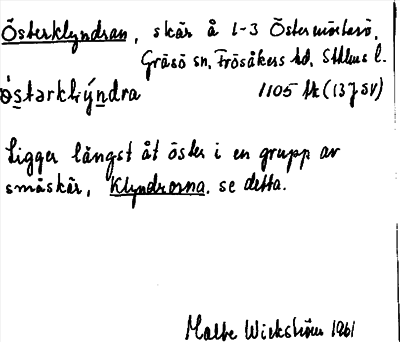 Österklyndran, skär å 1-3 Östermörtarö,
Gräsö sn, Frösåkers hd, Sthlms l.
östarklýndra 1105 fk (137 SV)
Ligger längst åt öster i en grupp av
småskär, Klyndrorna, se detta.
Malte Wickström 1961